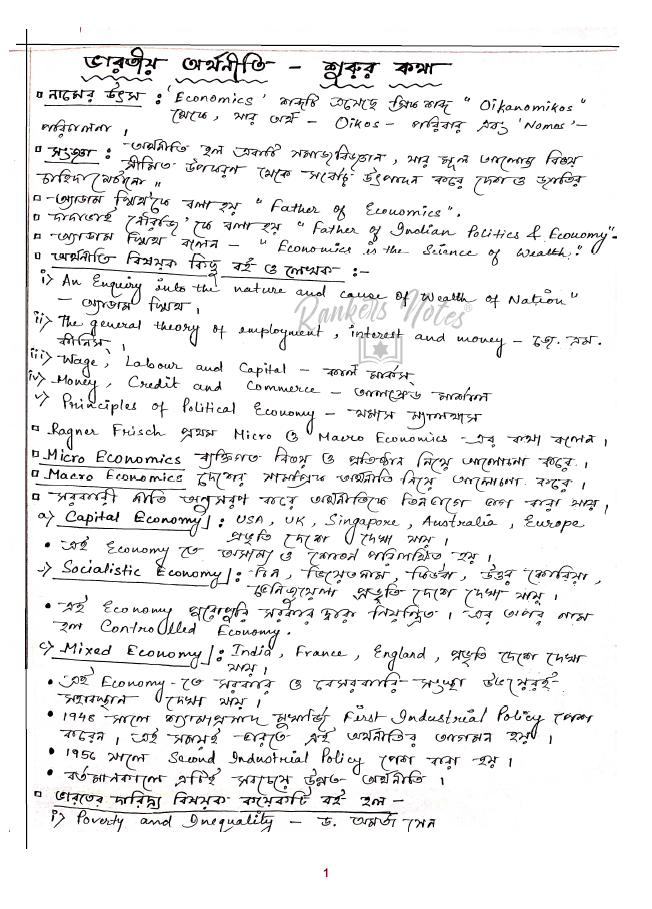 ভারতীয় অর্থনীতি – শুরুর কথা
▫ নামের উৎস : 'Economics' শব্দটি এসেছে গ্রিক শব্দ " Oikanomikos"
থেকে, যার অর্থ – Oikos – পরিবার এবং 'Nomos' –
পরিচালনা ।
▫ সংজ্ঞা : অর্থনীতি হল একটি সমাজবিজ্ঞান , যার মূল আলোচ্য বিষয়
সীমিত উপকরণ থেকে সর্বোচ্চ উৎপাদন করে দেশ ও জাতির
চাহিদা মেটানো ॥
▫ অ্যাডাম স্মিথ'কে বলা হয় " Father of Economics".
▫ দাদাভাই নৌরজি'কে বলা হয় " Father of Indian Politics & Economy".
▫ অ্যাডাম স্মিথ বলেন – " Economics is the Science of Wealth."
▫ অর্থনীতি বিষয়ক কিছু বই ও লেখক :-
i) An Enquiry into the nature and cause of Wealth of Nation"
– অ্যাডাম স্মিথ ।
ii) The general theory of employment , interest and money – জে. এম.
কীনিস ।
iii) Wage, Labour and Capital – কার্ল মার্কস্
iv) Money, Credit and Commerce – আলফ্রেড মার্শাল
v) Principles of Political Economy – থমাস ম্যালথাস
▫ Ragner Frisch প্রথম Micro ও Macro Economics -এর কথা বলেন ।
▫ Micro Economics ব্যক্তিগত বিষয় ও প্রতিষ্ঠান নিয়ে আলোচনা করে ।
▫ Macro Economics দেশের সামগ্রিক অর্থনীতি নিয়ে আলোচনা করে ।
▫ সরকারী নীতি অনুসরণ করে অর্থনীতিকে তিনভাগে ভাগ করা যায় ।
a) Capital Economy : USA, UK, Singapore, Australia, Europe
প্রভৃতি দেশে দেখা যায় ।
• এই Economy তে অসাম্য ও শোষণ পরিলক্ষিত হয় ।
Socialistic Economy : চিন, ভিয়েতনাম, কিউবা, উত্তর কোরিয়া,
ভেনিজুয়েলা প্রভৃতি দেশে দেখা যায় ।
• এই Economy পুরোপুরি সরকার দ্বারা নিয়ন্ত্রিত । এর অপর নাম
হল Controlled Economy.
c) Mixed Economy : India, France, England, প্রভৃতি দেশে দেখা
যায় ।
• এই Economy -তে সরকার ও বেসরকারি সংস্থা উভয়েরই
সহাবস্থান দেখা যায় ।
• 1948 সালে শ্যামাপ্রসাদ মুখার্জি First Industrial Policy পেশ
করেন । এই সময়ই ভারতে এই অর্থনীতির আগমন হয় ।
• 1956 সালে Second Industrial Policy পেশ করা হয় ।
• বর্তমানকালে এটিই সবচেয়ে উন্নত অর্থনীতি ।
▫ ভারতের দারিদ্র্য বিষয়ক কয়েকটি বই হল –
i) Povedy and Inequality – ড. অমর্ত্য সেন
Rankers Notes®
1